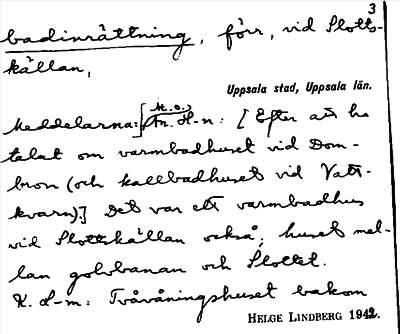 3
badinrättning, förr, vid Slotts-
källan,
Uppsala stad, Uppsala län.
M.O.:
Meddelarna: [Fr. H-n: [Efter att ha
talat om varmbadhuset vid Dom-
bron (och kallbadhuset vid Vatt-
kvarn).] Det var ett varmbadhus
vid Slottskällan också; huset mel-
lan golvbanan och Slottet.
K. L-m: Tvåvåningshuset bakom
HELGE LINDBERG 1942.